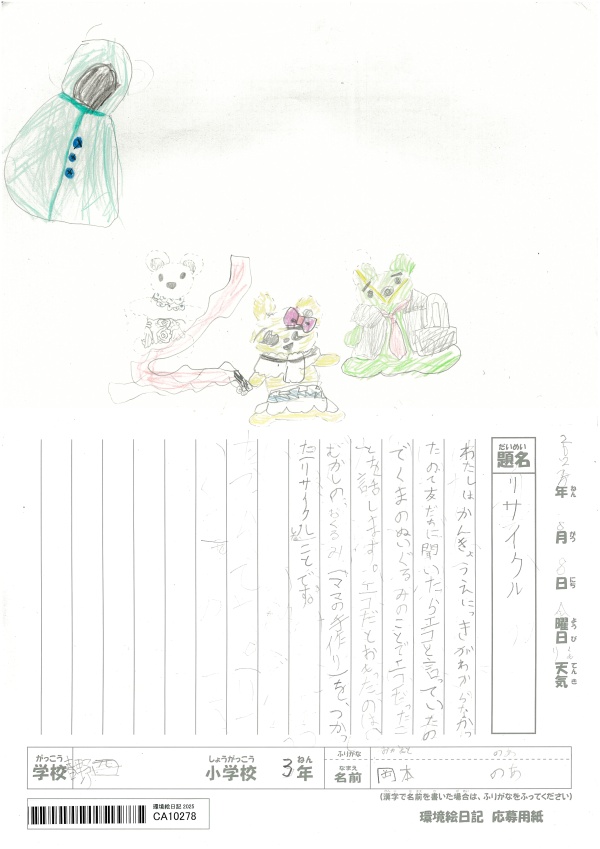 2025年 8月 8日 曜日 天気
ねん がつ にち ようび てんき
だいめい
題名
リサイクル
わたしはかんきょうえにっきがわからなかっ
たので友だちに聞いたらエコと言っていたの
でくまのぬいぐるみのことでエコだったこ
とを話します。エコだとおもったのは、
むかしの、おくるみ(ママの手作り)を、つかっ
た(リサイクル)ことです。
がっこう
学校
西
しょうがっこう
小学校
3年
ねん
ふりがな
なまえ
名前
おかもと のあ
岡本 のあ
(漢字で名前を書いた場合は、ふりがなをふってください)
環境絵日記 2025
CA10278
環境絵日記 応募用紙